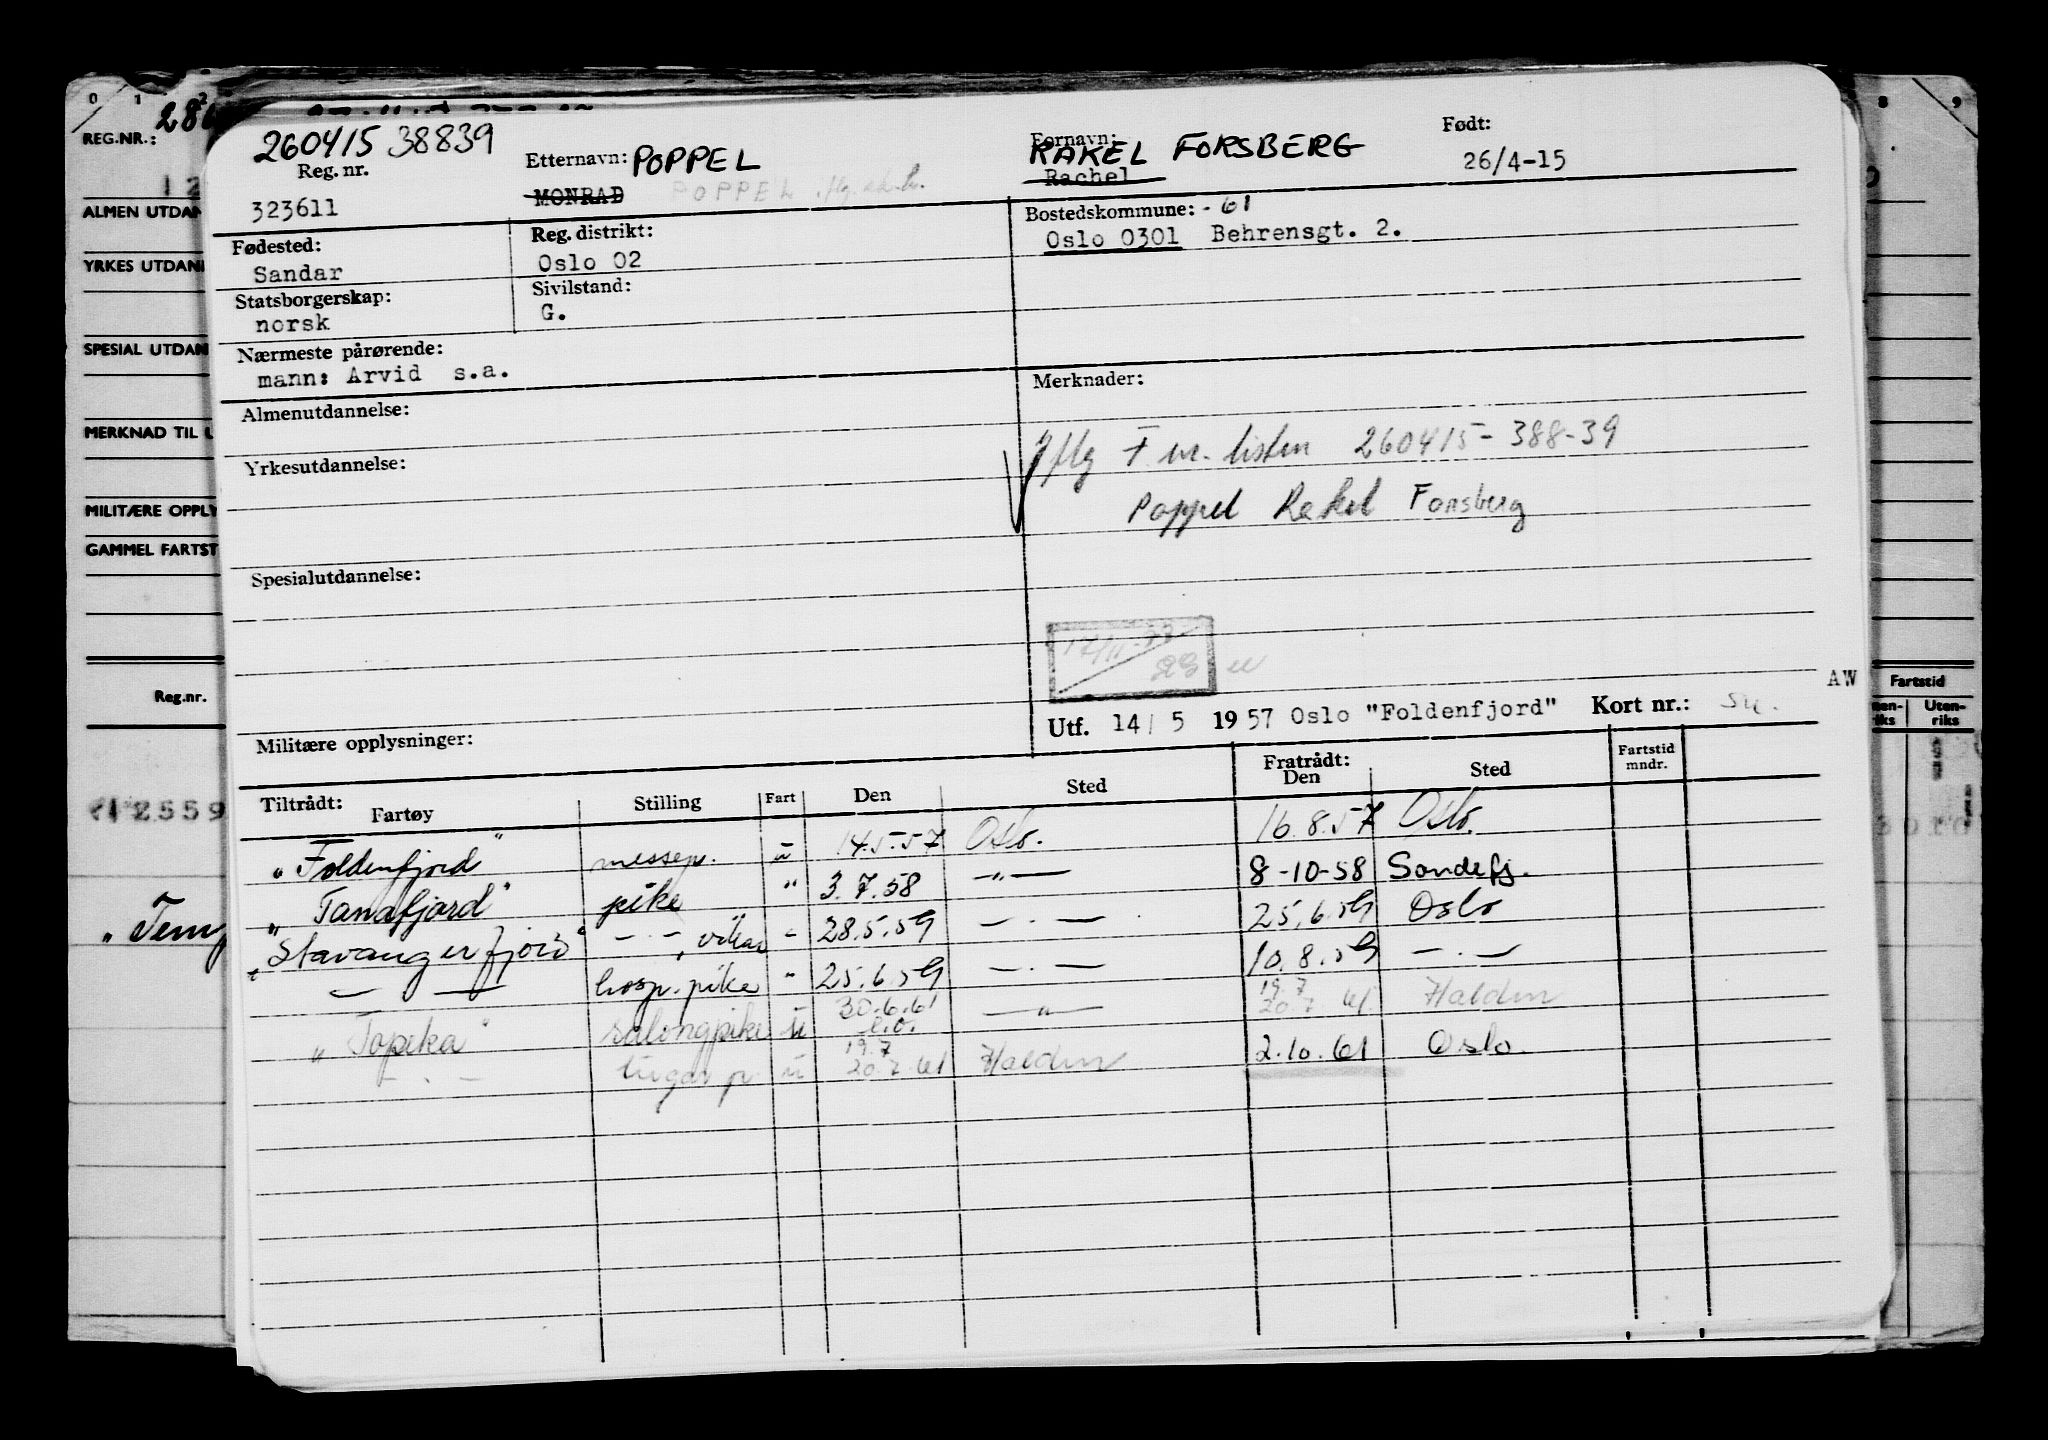 0 1 2
REG.NR.:
ALMEN UTDAN
YRKES UTDAN
SPESIAL UTDAN
MERKNAD TIL U
MILITÆRE OPPLY
GAMMEL FARTST
Reg.nr.
12559
"Tem
8 9
Fartstid
Uten-
riks
260415 38839
Reg. nr.
323611
Etternavn: POPPEL
MONRAD POPPEL
Fornavn:
RAKEL FORSBERG
Rachel
Født:
26/4-15
Fødested:
Sandar
Reg. distrikt:
Oslo 02
Bostedskommune: - 61
Oslo 0301 Behrensgt. 2.
Statsborgerskap:
norsk
Sivilstand:
G.
Nærmeste pårørende:
mann: Arvid s.a.
Almenutdannelse:
Yrkesutdannelse:
Spesialutdannelse:
Militære opplysninger:
Merknader:
Iflg F nr. listen 260415-388-39
Poppel Rakel Forsberg
AW
Utf. 14/ 5 1957 Oslo "Foldenfjord" Kort nr.:
Tiltrådt: Fartøy Stilling Fart Den Sted Fratrådt: Den Sted Fartstid mndr.
"Foldenfjord" messep. u 14.5.57 Oslo. 16.8.57 Oslo.
"Tanafjord" pike " 3.7.58 —"— 8-10-58 Sandefj.
"Stavangerfjord" — . — , vikar " 28.5.59 — . — 25.6.59 Oslo
— — hosp. pike " 25.6.59 — . — 10.8.59 — . —
"Topeka" salongpike u 30.6.61 —"— 19.7 20.7.61 Halden
— . — u 19.7 20.7.61 Halden 2.10.61 Oslo.